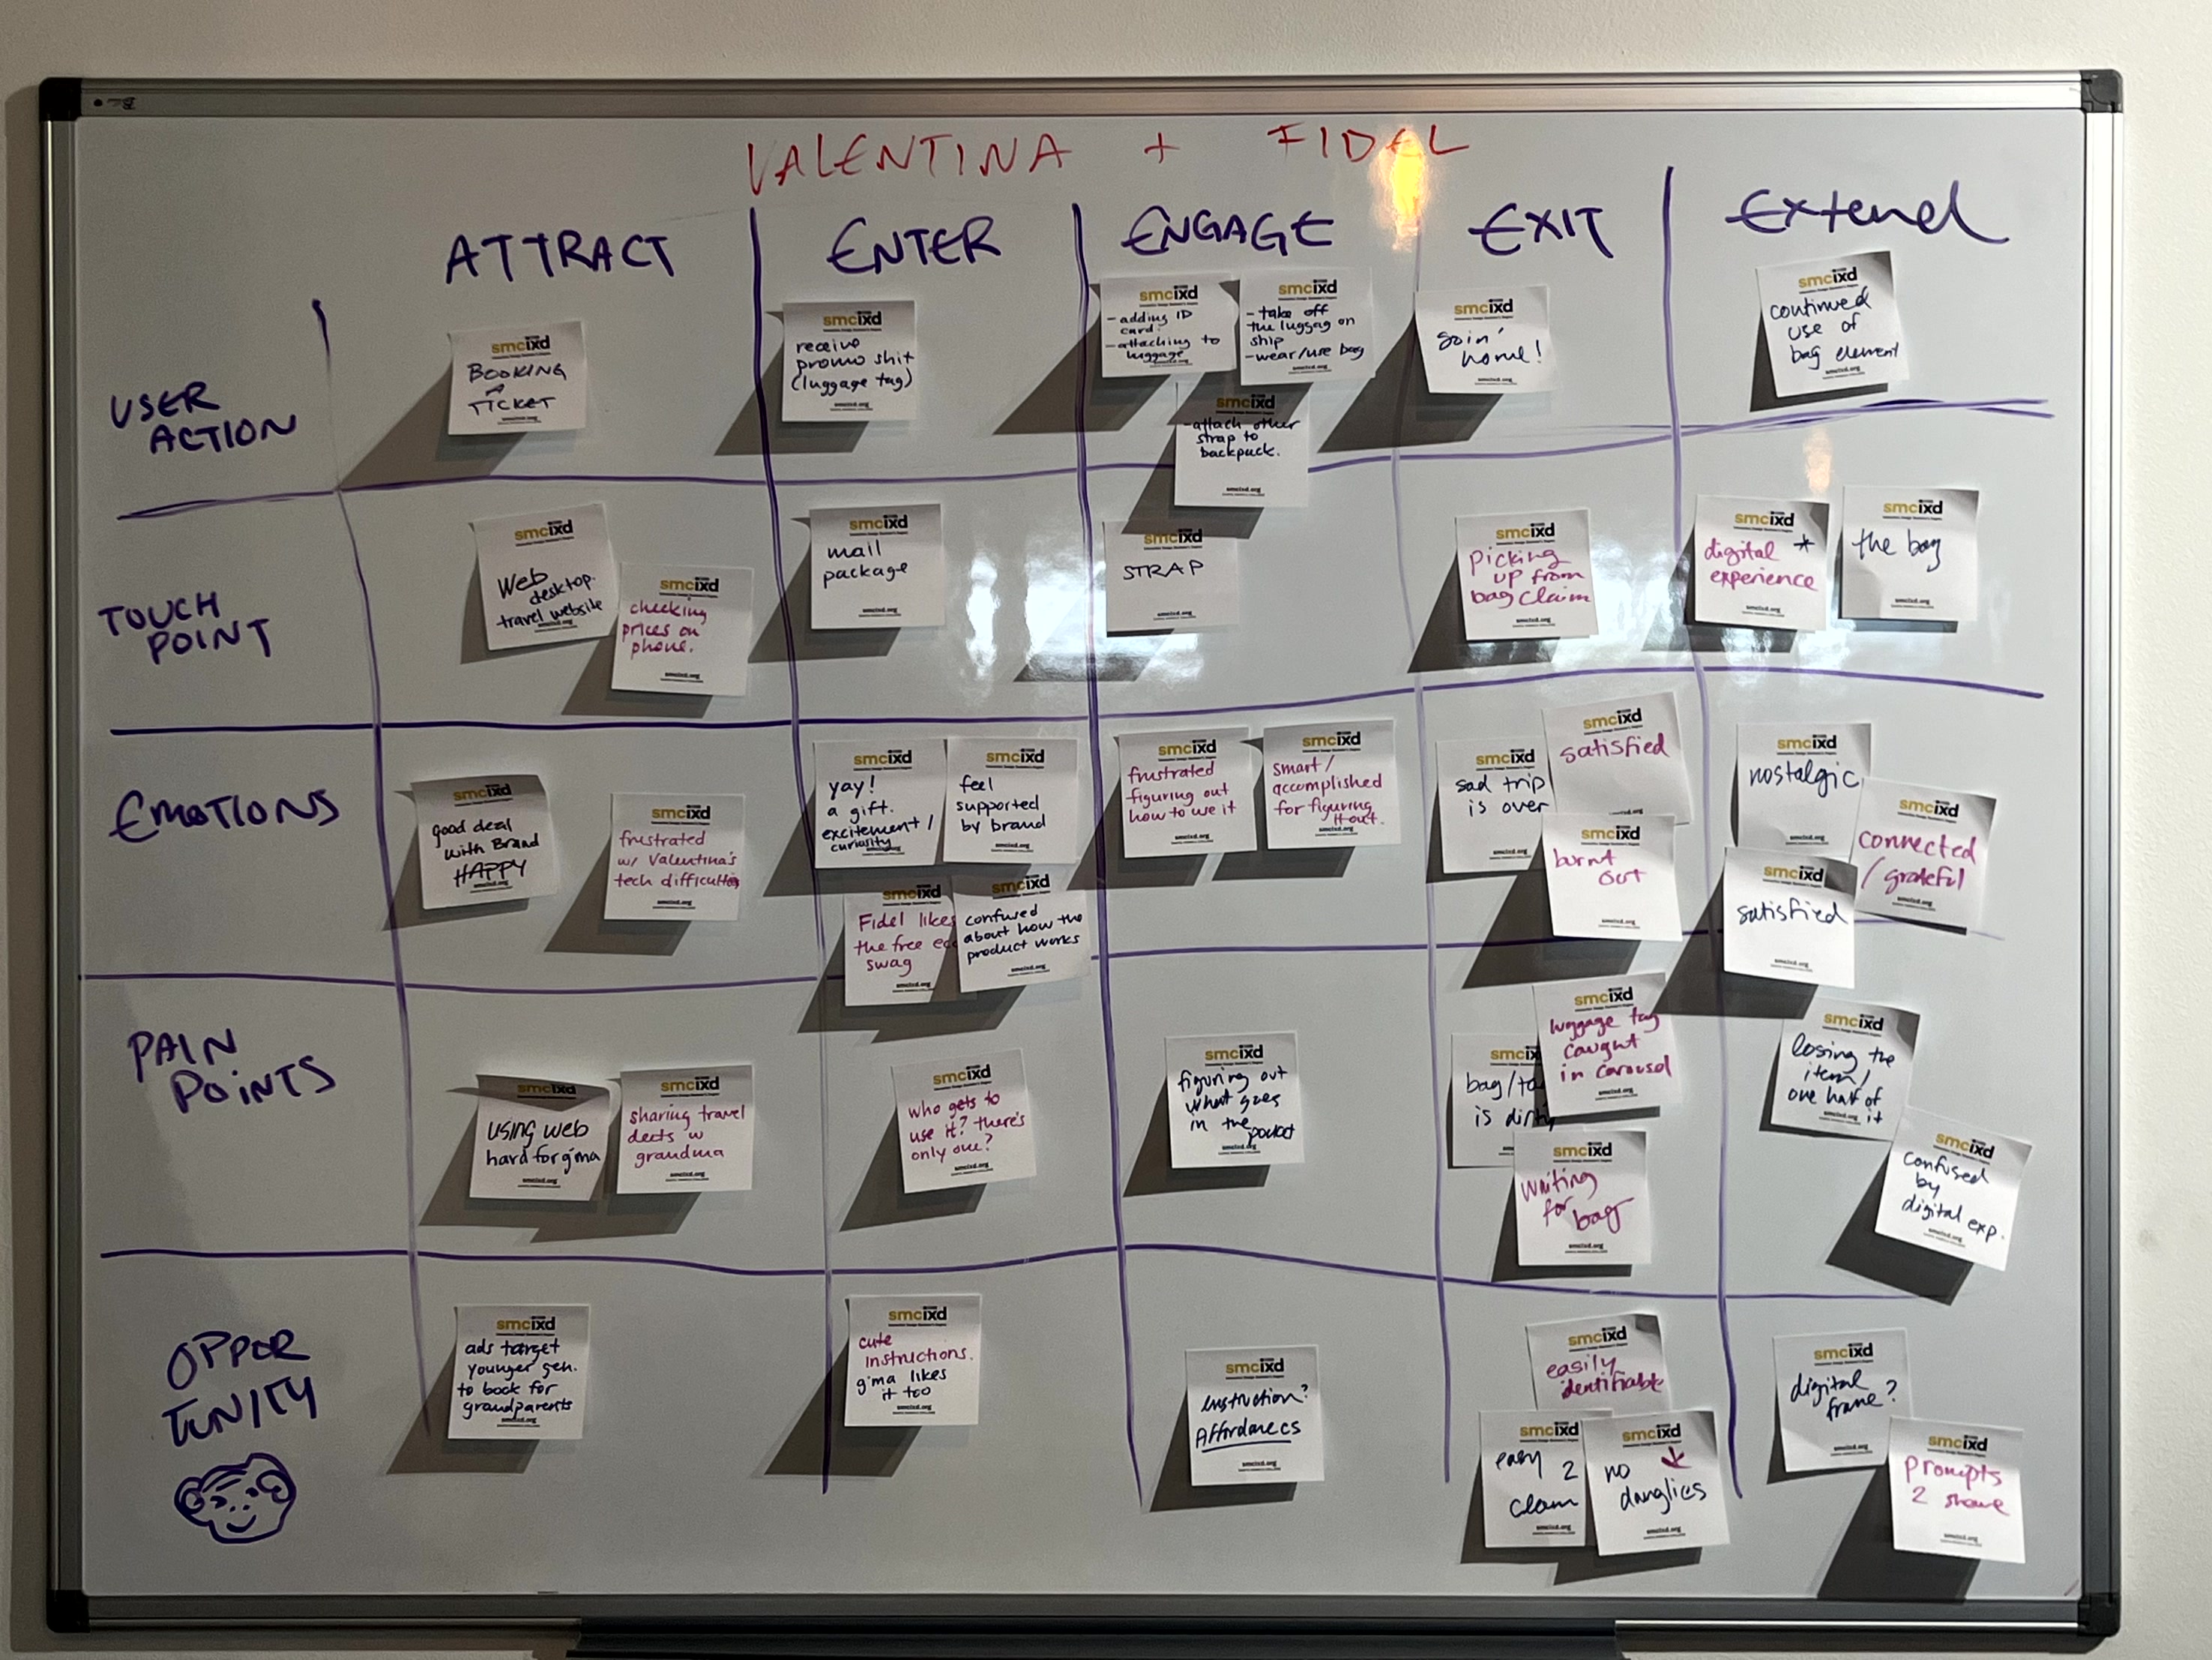 VALENTINA + FIDEL
ATTRACT
ENTER
ENGAGE
EXIT
Extend
USER
ACTION
smcixd
BOOKING
A
TICKET
smcixd.org
smcixd
receive
promo shit
(luggage tag)
smcixd.org
smcixd
- adding ID
card
- attaching to
luggage
smcixd
- take off
the luggag on
ship
- wear/use bag
smcixd.org
smcixd
- attach other
strap to
backpack.
smcixd.org
smcixd
goin'
home!
smcixd.org
smcixd
continued
use of
bag element
smcixd.org
TOUCH
POINT
smcixd
Web
desktop.
travel website
smcixd.org
smcixd
checking
prices on
phone.
smcixd.org
smcixd
mail
package
smcixd.org
smcixd
STRAP
smcixd.org
smcixd
picking
up from
bag claim
smcixd.org
smcixd
digital *
experience
smcixd.org
smcixd
the bag
smcixd.org
EMOTIONS
smcixd
good deal
with Brand
HAPPY
smcixd.org
smcixd
frustrated
w/ Valentina's
tech difficulties
smcixd.org
smcixd
yay!
a gift.
excitement/
curiosity
smcixd
feel
supported
by brand
smcixd.org
smcixd
Fidel likes
the free
swag
smcixd.org
smcixd
confused
about how the
product works
smcixd.org
smcixd
frustrated
figuring out
how to use it
smcixd.org
smcixd
smart/
accomplished
for figuring
it out.
smcixd.org
smcixd
sad trip
is over
smcixd.org
smcixd
satisfied
smcixd
burnt
out
smcixd.org
smcixd
nostalgic
smcixd
connected
/grateful
smcixd.org
smcixd
satisfied
smcixd.org
PAIN
POINTS
smcixd
using web
hard for g'ma
smcixd.org
smcixd
sharing travel
deets w
grandma
smcixd.org
smcixd
who gets to
use it? there's
only one?
smcixd.org
smcixd
figuring out
what goes
in the pocket
smcixd.org
bag/
is dirty
smcixd
luggage tag
caught
in carousel
smcixd.org
smcixd
waiting
for bag
smcixd.org
smcixd
losing the
item/
one half of
it
smcixd.org
smcixd
confused
by
digital exp.
smcixd.org
OPPOR
TUNITY
smcixd
ads target
younger gen.
to book for
grandparents
smcixd.org
smcixd
cute
instructions.
g'ma likes
it too
smcixd.org
smcixd
instruction?
Affordances
smcixd.org
smcixd
easily
identifiable
smcixd
easy 2
claim
smcixd.org
smcixd
no
danglies
smcixd.org
smcixd
digital
frame?
smcixd.org
smcixd
prompts
2 share
smcixd.org